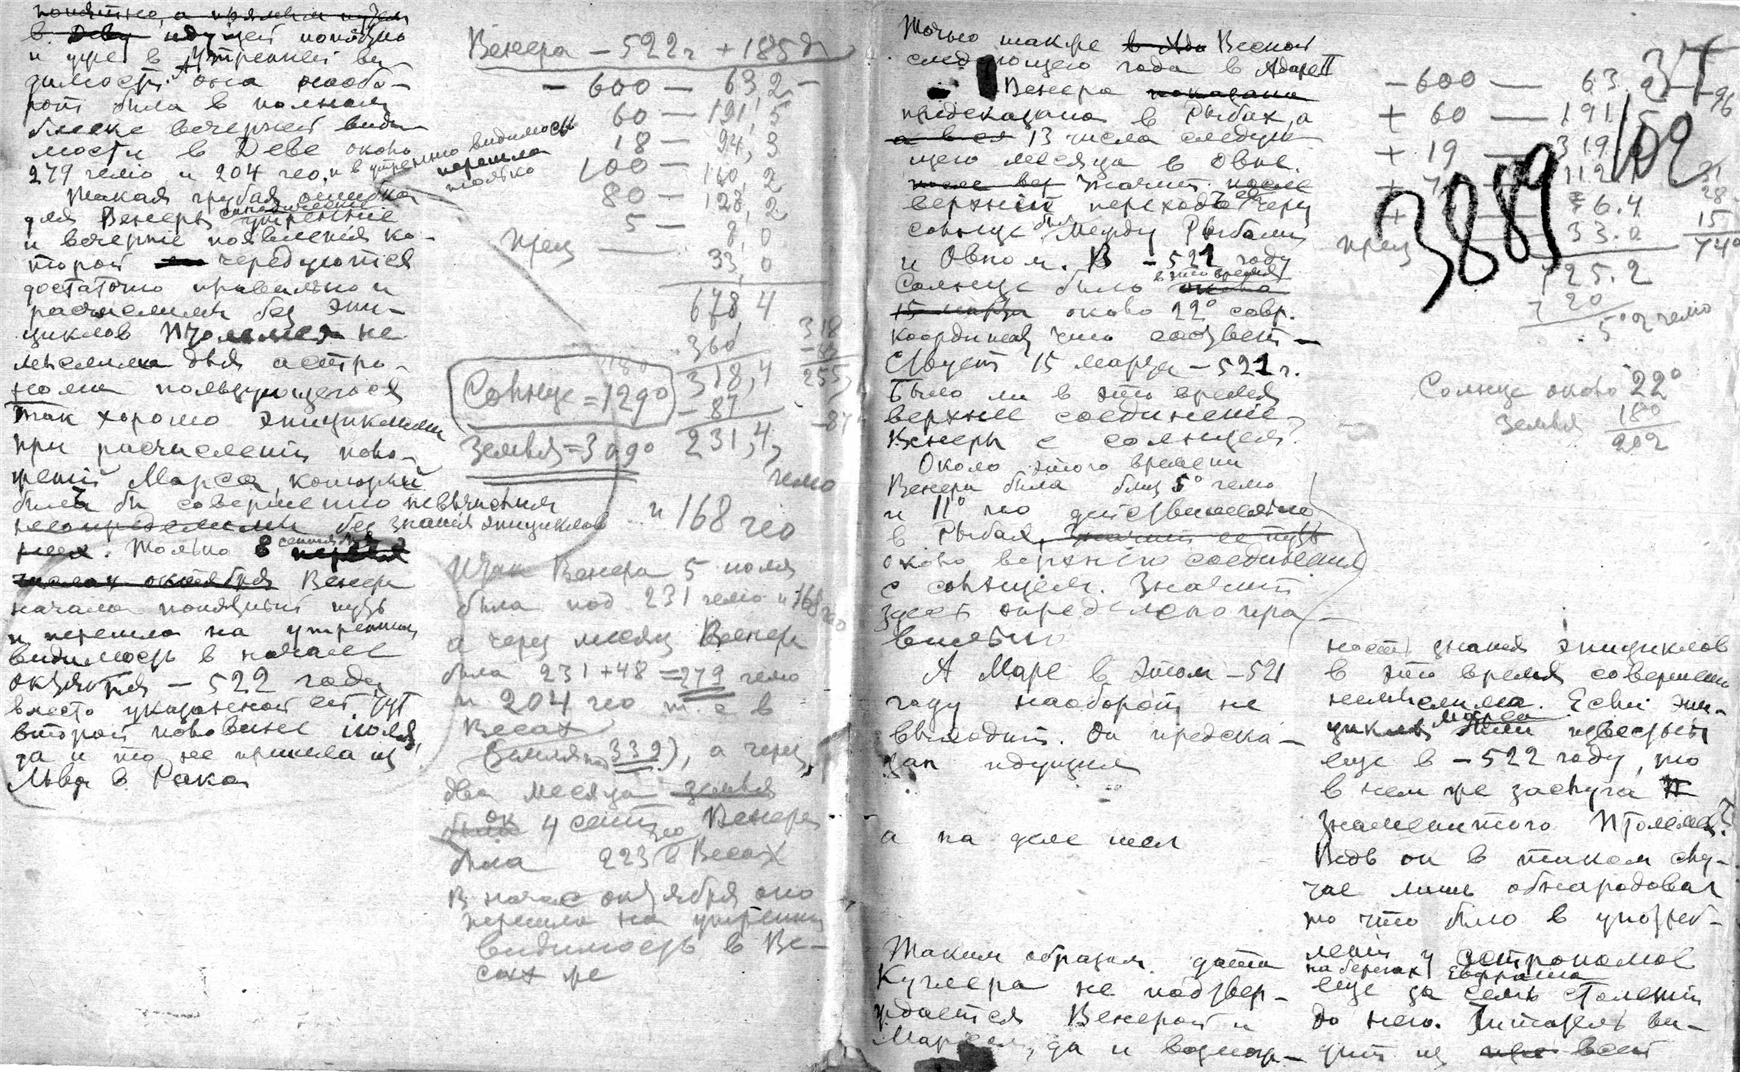 понятно, а прямым путем
в Деву идущей попятно
и уже в утренней ви-
димости. А она наобо-
рот была в полном
блеске вечерней види-
мости в Деве около
279 гемо и 204 гео, и в утреннюю видимость
перешла
только
Такая грубая ошибка
для Венеры, синодические
утренние
и вечерние появления ко-
торой чередуются
достаточно правильно и
расчислимы без эпи-
циклов Птолемея не
мыслима для астро-
нома пользующегося
так хорошо эпициклами
при расчислении поло-
жений Марса, который
был бы совершенно невычислим
без знания эпициклов
Только в сентябре
первых
числах октября Венера
начала попятный путь
и перешла на утреннюю
видимость в начале
октября -522 года
вместо указанной тут
второй половины июля,
да и то не пришла из
Льва в Рака
Венера -522 г + 185 д
- 600 — 63,2 -
60 — 191,5
18 — 94,3
100 — 160,2
80 — 128,2
5 — 8,0
прец — 33,0
678,4
360
318,4
- 87
231,4
гемо
и 168 гео
Солнце = 129°
Земля = 309°
Итак Венера 5 июля
была под 231 гемо и 168 гео
а через месяц Венера
была 231+48 = 279 гемо
и 204 гео т. е в
Весах
(Земля 339), а через
два месяца земля
была ок 4 сент Венера
была 223 гео в Весах
В начале октября она
перешла на утреннюю
видимость в Ве-
сах же
Точно также Весной
следующего года в Адаре II
Венера показана
предсказана в Рыбах, а
13 числа следую-
щего месяца в Овне.
Значит после
верхний переход ее через
солнце был между Рыбами
и Овном. В -521 году
Солнце было в это время
около
15 марта около 22° совр.
координат что соответ-
ствует 15 марта -521 г.
Было ли в это время
верхнее соединение
Венеры с солнцем?
Около этого времени
Венера была близ 5° гемо
и 11° гео действительно
в Рыбах, значит ее путь
около верхнего соединения
с солнцем. Значит
здесь определено пра-
вильно
А Марс в этом -521
году наоборот не
выходит. Он предска-
зан идущим
а на деле шел
Таким образом дата
Куглера не подтвер-
ждается Венерой и
Марсом, да и возмож-
-600 — 63.2
+ 60 — 191.5
+ 19 — 319
112
6.4
прец 33.0
725.2
720
5°2 гемо
37
96
102
3889
28
15
740
Солнце около 22°
Земля 180
202
ность знания эпициклов
в это время совершенно
немыслима. Если эпи-
циклы Марса были известны
еще в -522 году, то
в чем же заслуга
знаменитого Птолемея?
Ведь он в таком слу-
чае лишь обнародовал
то что было в употреб-
лении у астрономов
на берегах Евфрата
еще за семь столетий
до него. Читатель ви-
дит из всей